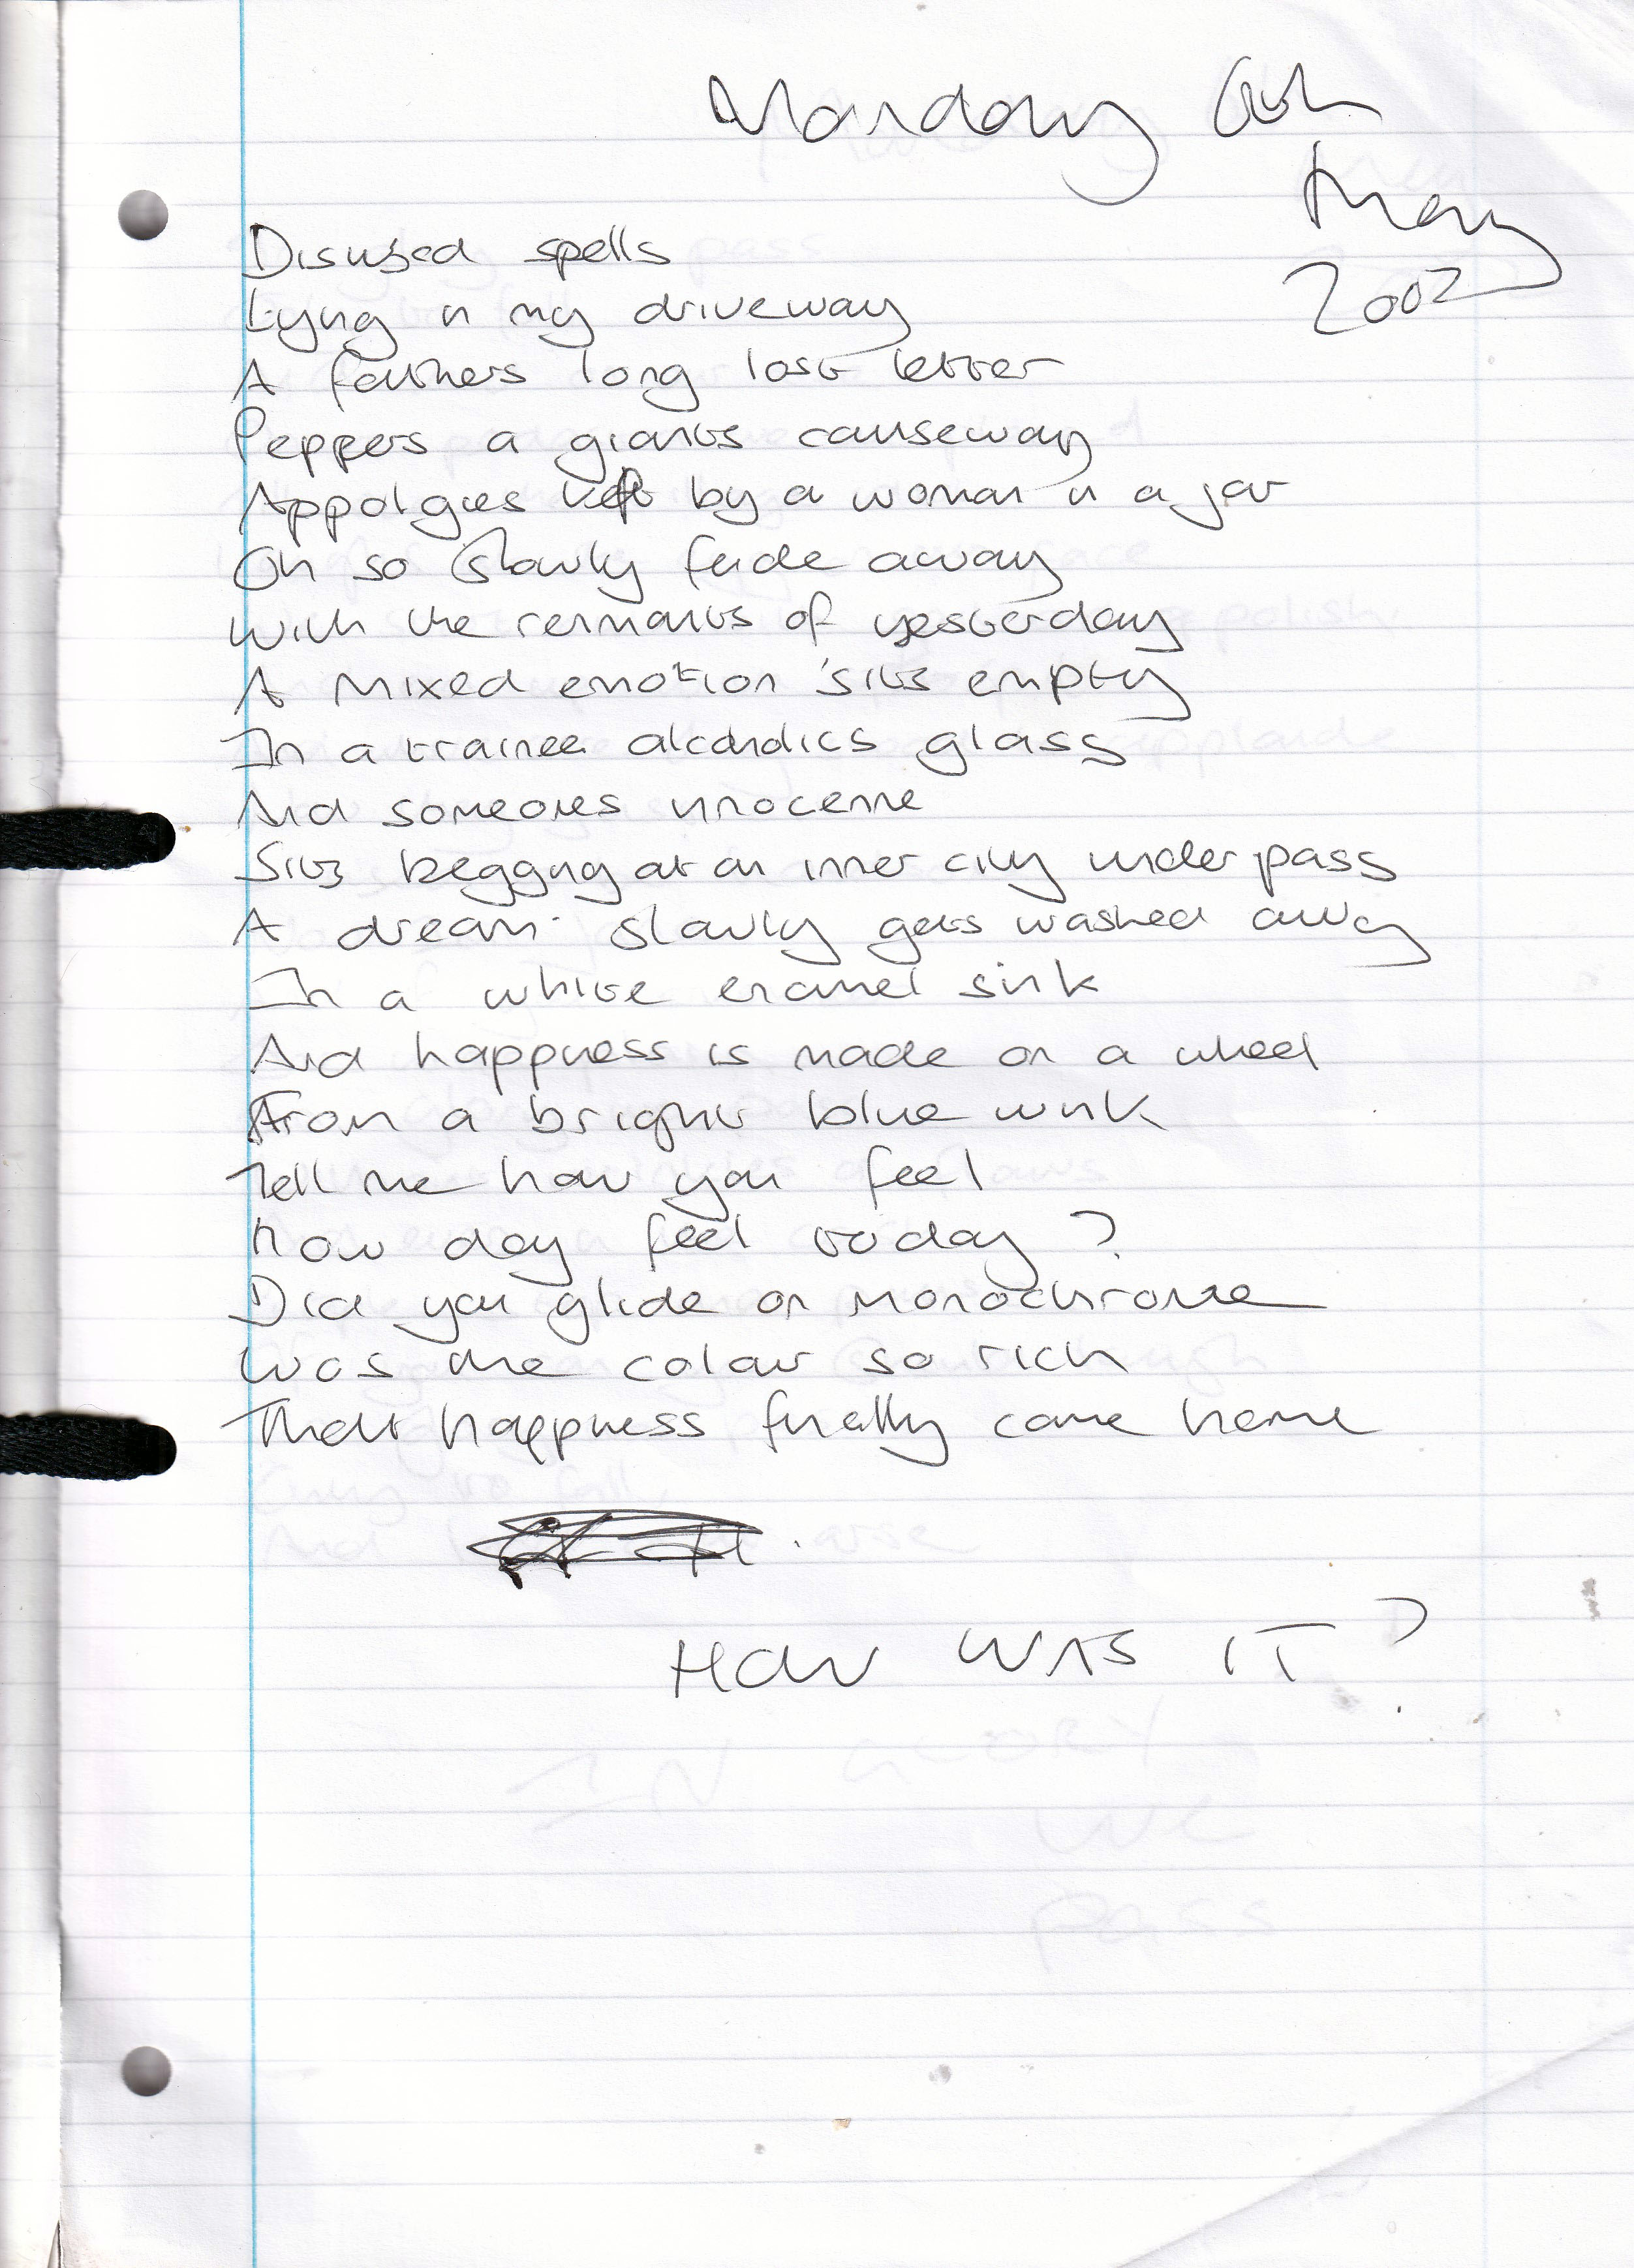 Monday 6th
May
2002
Disused spells
Lying in my driveway
A fathers long lost letter
Peppers a giants causeway
Appolgies left by a woman in a jar
Oh so slowly fade away
With the remnants of yesterday
A mixed emotion sits empty
In a trainee alcoholics glass
And someones innocence
Sits begging at an inner city underpass
A dream slowly gets washed away
In a white enamel sink
And happiness is made on a wheel
From a bright blue wink
Tell me how you feel
How day feel today?
Did you glide on monochrome
Was the colour so rich
That happiness finally came home
HOW WAS IT?